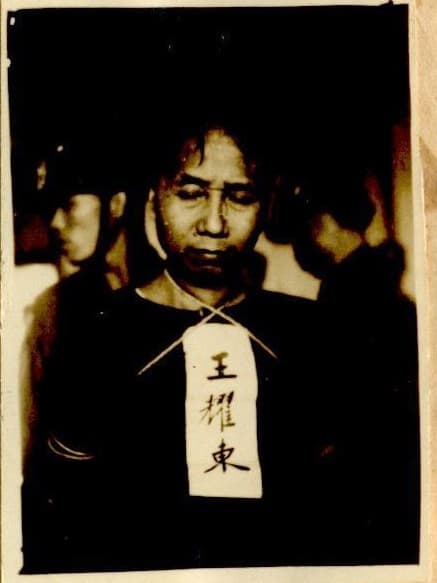 王耀東